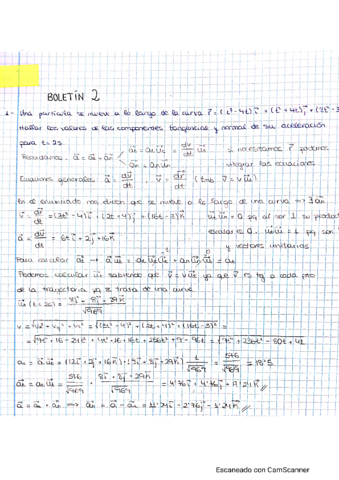 BOLETÍN 2
1- Una partícula se mueve a lo largo de la curva r⃗ = (t³-4t)i⃗ + (t²+4t)j⃗ + (8t²-3
Hallar los valores de las componentes tangencial y normal de su aceleración
para t=2s.
Recordamos: a⃗ = a⃗t + a⃗n < a⃗t = at u⃗t = dv/dt u⃗t si necesitamos r⃗ podemos
a⃗n = an u⃗n integrar las ecuaciones
Ecuaciones generales a⃗ = dv⃗/dt , v⃗ = dr⃗/dt (tmb v⃗ = v u⃗t)
En el enunciado nos dicen que se mueve a lo largo de una curva => ∃ an
v⃗ = dr⃗/dt = (3t²-4)i⃗ + (2t+4)j⃗ + (16t-3)k⃗ u⃗t u⃗n = 0 pq al ser ⊥ su product
a⃗ = dv⃗/dt = 6t i⃗ + 2j⃗ + 16k⃗ escalar es 0. u⃗t u⃗t = 1 pq son
y vectores unitarios
Para calcular a⃗t → a⃗ u⃗t = at u⃗t u⃗t + an u⃗n u⃗t = at
Podemos calcular u⃗t sabiendo que v⃗ = v u⃗t ya que v⃗ es tg a cada pto
de la trayectoria ya se trata de una curva
u⃗t (t=2s) = 8i⃗ + 8j⃗ + 29k⃗ / √969
v = √vx² + vy² + vz² = √(3t²-4)² + (2t+4)² + (16t-3)² =
= √9t⁴ + 16 - 24t² + 4t² + 16 + 16t + 256t² + 9 - 96t = √9t⁴ + 236t² - 80t + 41
at = a⃗ u⃗t = (12i⃗ + 2j⃗ + 16k⃗)·(8i⃗ + 8j⃗ + 29k⃗) 1/√969 = 576/√969 = 18'5
a⃗t = at u⃗t = 576/√969 · 8i⃗ + 8j⃗ + 29k⃗ / √969 = 4'76i⃗ + 4'76j⃗ + 17'24k⃗
a⃗ = a⃗t + a⃗n => a⃗n = a⃗ - a⃗t = 7'24i⃗ - 2'76j⃗ - 1'24k⃗
Escaneado con CamScanner